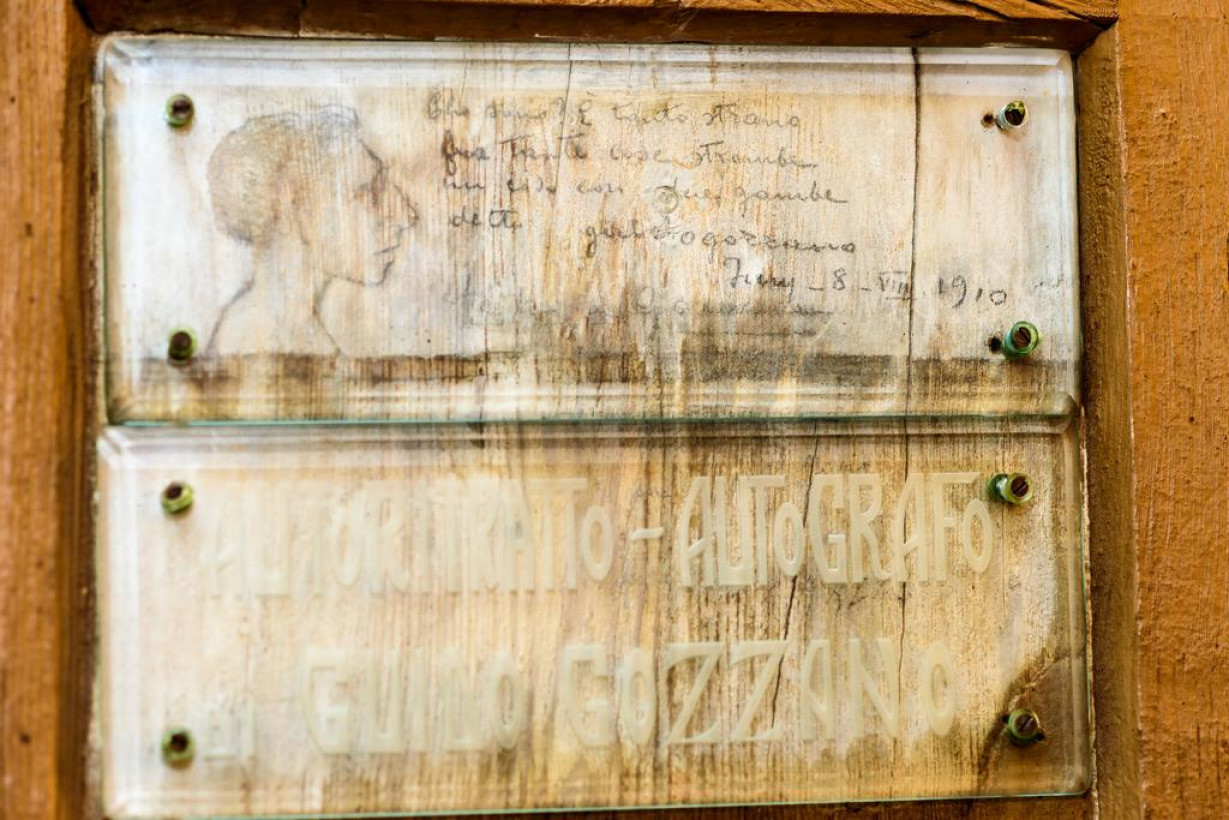 Chi sono? È tanto strano
fra tante cose strambe
un coso con due gambe
detto guidogozzano
- 8 - VIII. 1910
AUTORITRATTO - AUTOGRAFO
DI GUIDO GOZZANO